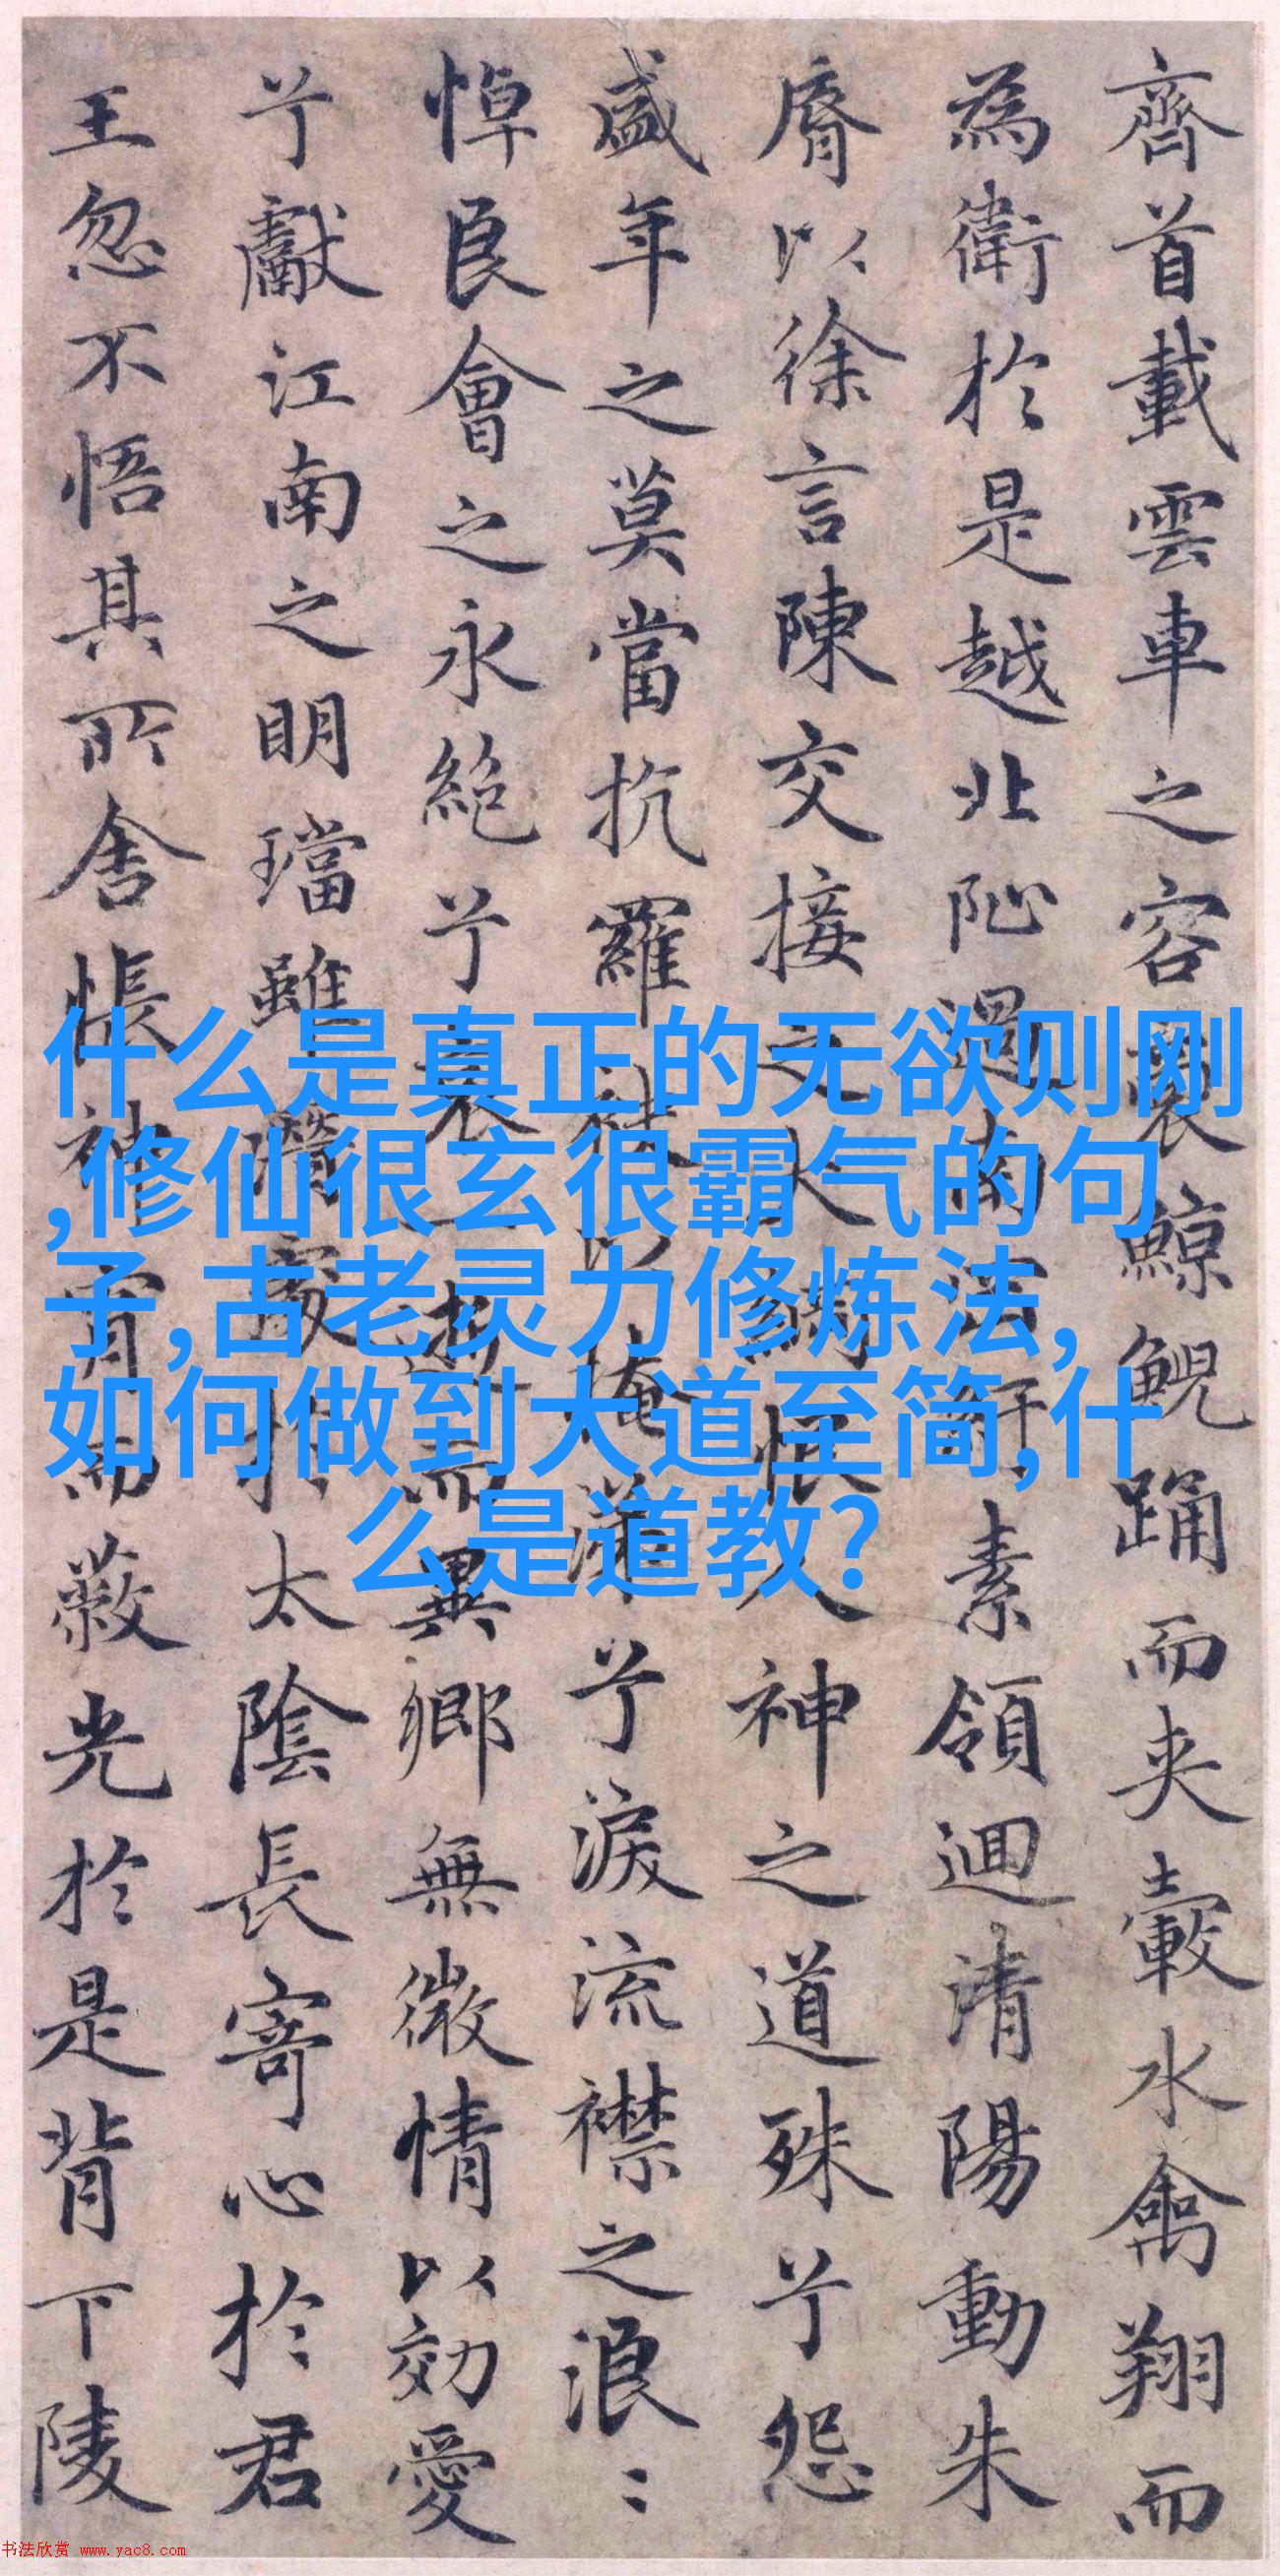 齊首載雲車之容裔鯨鯢踊而夾轂水禽翔而
為衛於是越北沚過南岡紆素領迴清陽動朱
脣以徐言陳交接之大綱恨人神之道殊兮怨
盛年之莫當抗羅袂以掩涕兮淚流襟之浪〻
悼良會之永絶兮哀一逝而異鄉無微情以効愛
兮獻江南之明璫雖潛處於太陰長寄心於君
王忽不悟其所舍悵神宵而蔽光於是背下陵
什么是真正的无欲则刚
,修仙很玄很霸气的句
子,古老灵力修炼法,
如何做到大道至简,什
么是道教?
书法欣赏 www.yac8.com